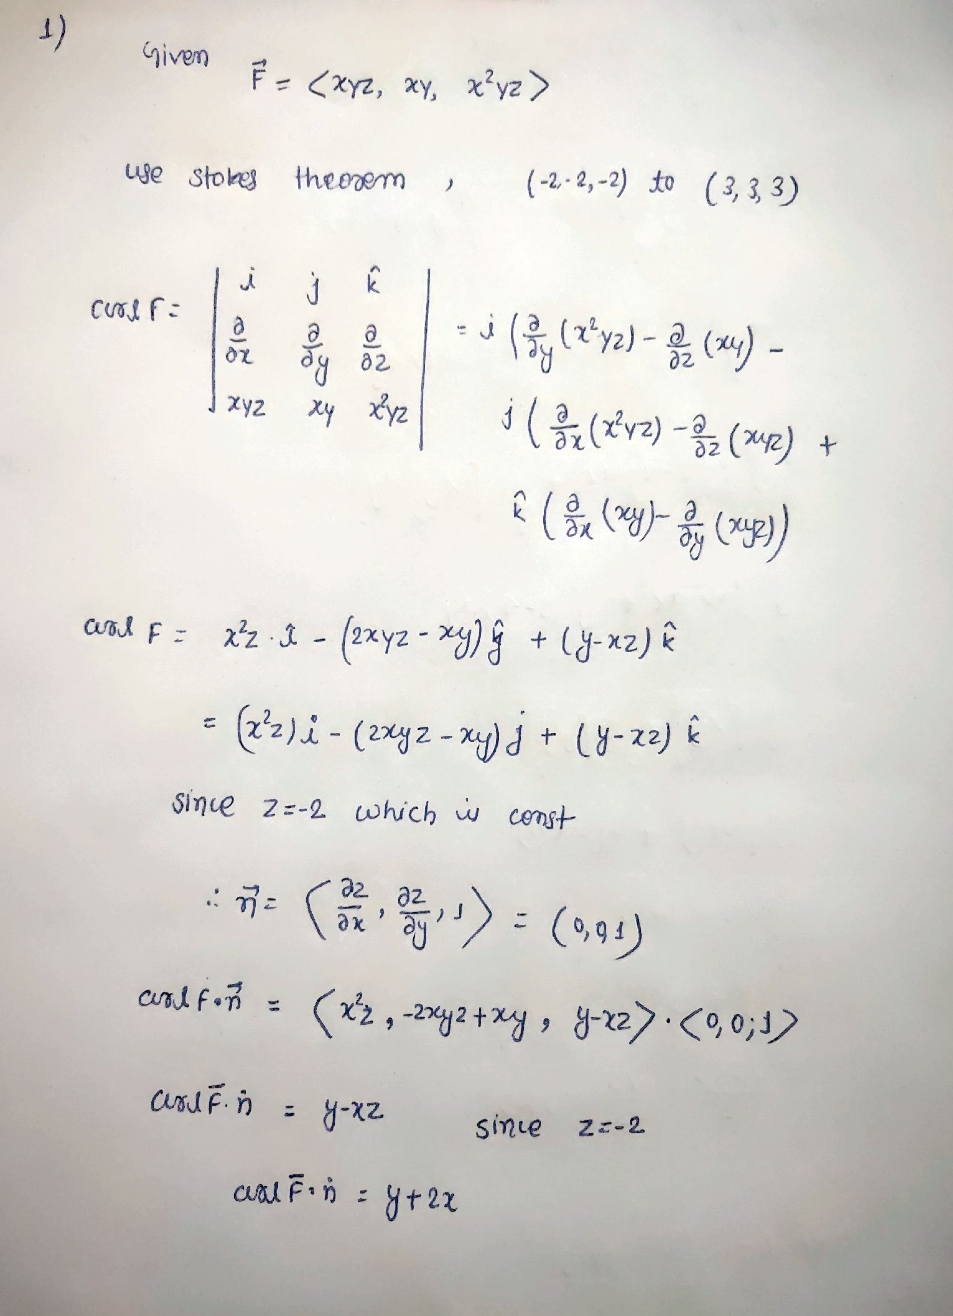 1)
Given
F⃗ = <xyz, xy, x²yz>
use stokes theorem , (-2,-2,-2) to (3,3,3)
curl F = | i j k̂ | = i (∂/∂y (x²yz) - ∂/∂z (xy) -
| ∂/∂x ∂/∂y ∂/∂z |
| xyz xy x²yz | j ( ∂/∂x (x²yz) - ∂/∂z (xyz) +
k̂ ( ∂/∂x (xy) - ∂/∂y (xyz))
curl F = x²z · î - (2xyz - xy) ĵ + (y-xz) k̂
= (x²z) i - (2xyz - xy) j + (y-xz) k̂
since z=-2 which is const
∴ n⃗ = (∂z/∂x, ∂z/∂y, 1> = (0,0,1)
curl F·n⃗ = (x²z, -2xyz+xy, y-xz>·<0,0;1>
curl F̅·n̂ = y-xz since z=-2
curl F̅·n̂ = y+2x